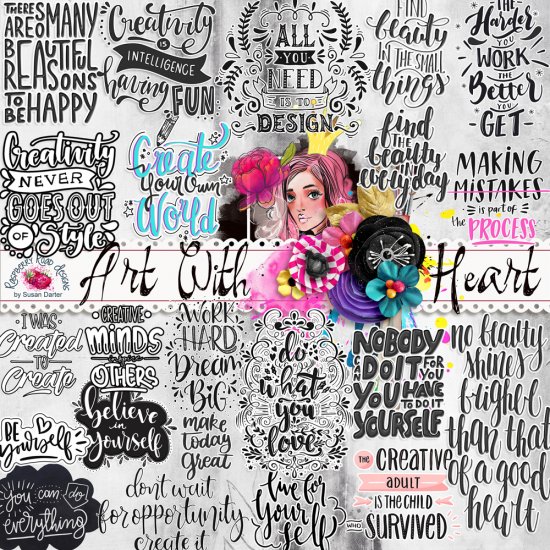 THERE
ARE SO MANY
BEAUTIFUL
REASONS
TO BE HAPPY
Creativity
IS
INTELLIGENCE
having
FUN
ALL
YOU
NEED
IS TO
DESIGN
FIND
beauty
IN THE SMALL
things
THE
Harder
YOU
WORK
THE
Better
YOU
GET
Creativity
NEVER
GOES OUT
OF Style
Create
Your Own
World
find
THE
beauty
in
everyday
MAKING
MISTAKES
is part of
the PROCESS
Raspberry Road Designs
by Susan Darter
Art With Heart
I WAS
Created
TO
Create
CREATIVE
minds
inspire
OTHERS
WORK
HARD
Dream
BIG
make
today
great
do
what
you
love
NOBODY
CAN DO IT FOR
YOU YOU
HAVE
TO DO IT
YOURSELF
no beauty
shines
brighter
than that
of a good
heart
BE
Yourself
believe
in
yourself
you can do
everything
don't wait
for opportunity
create it
live for
yourself
THE
CREATIVE
ADULT
IS THE CHILD
WHO SURVIVED